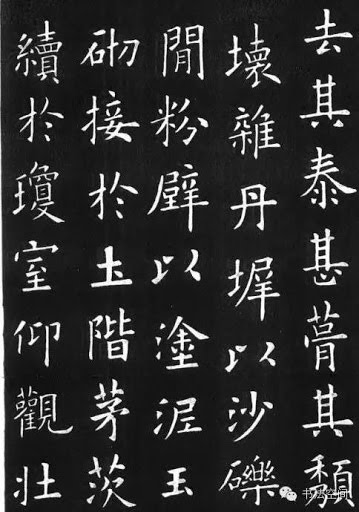 去其泰甚葺其頹
壞雜丹墀以沙礫
閒粉壁以塗泥玉
砌接於土階茅茨
續於瓊室仰觀壯
书法空间